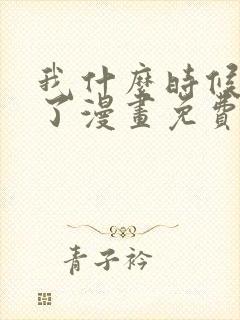 我什麼時候
了漫畫免費
青子衿